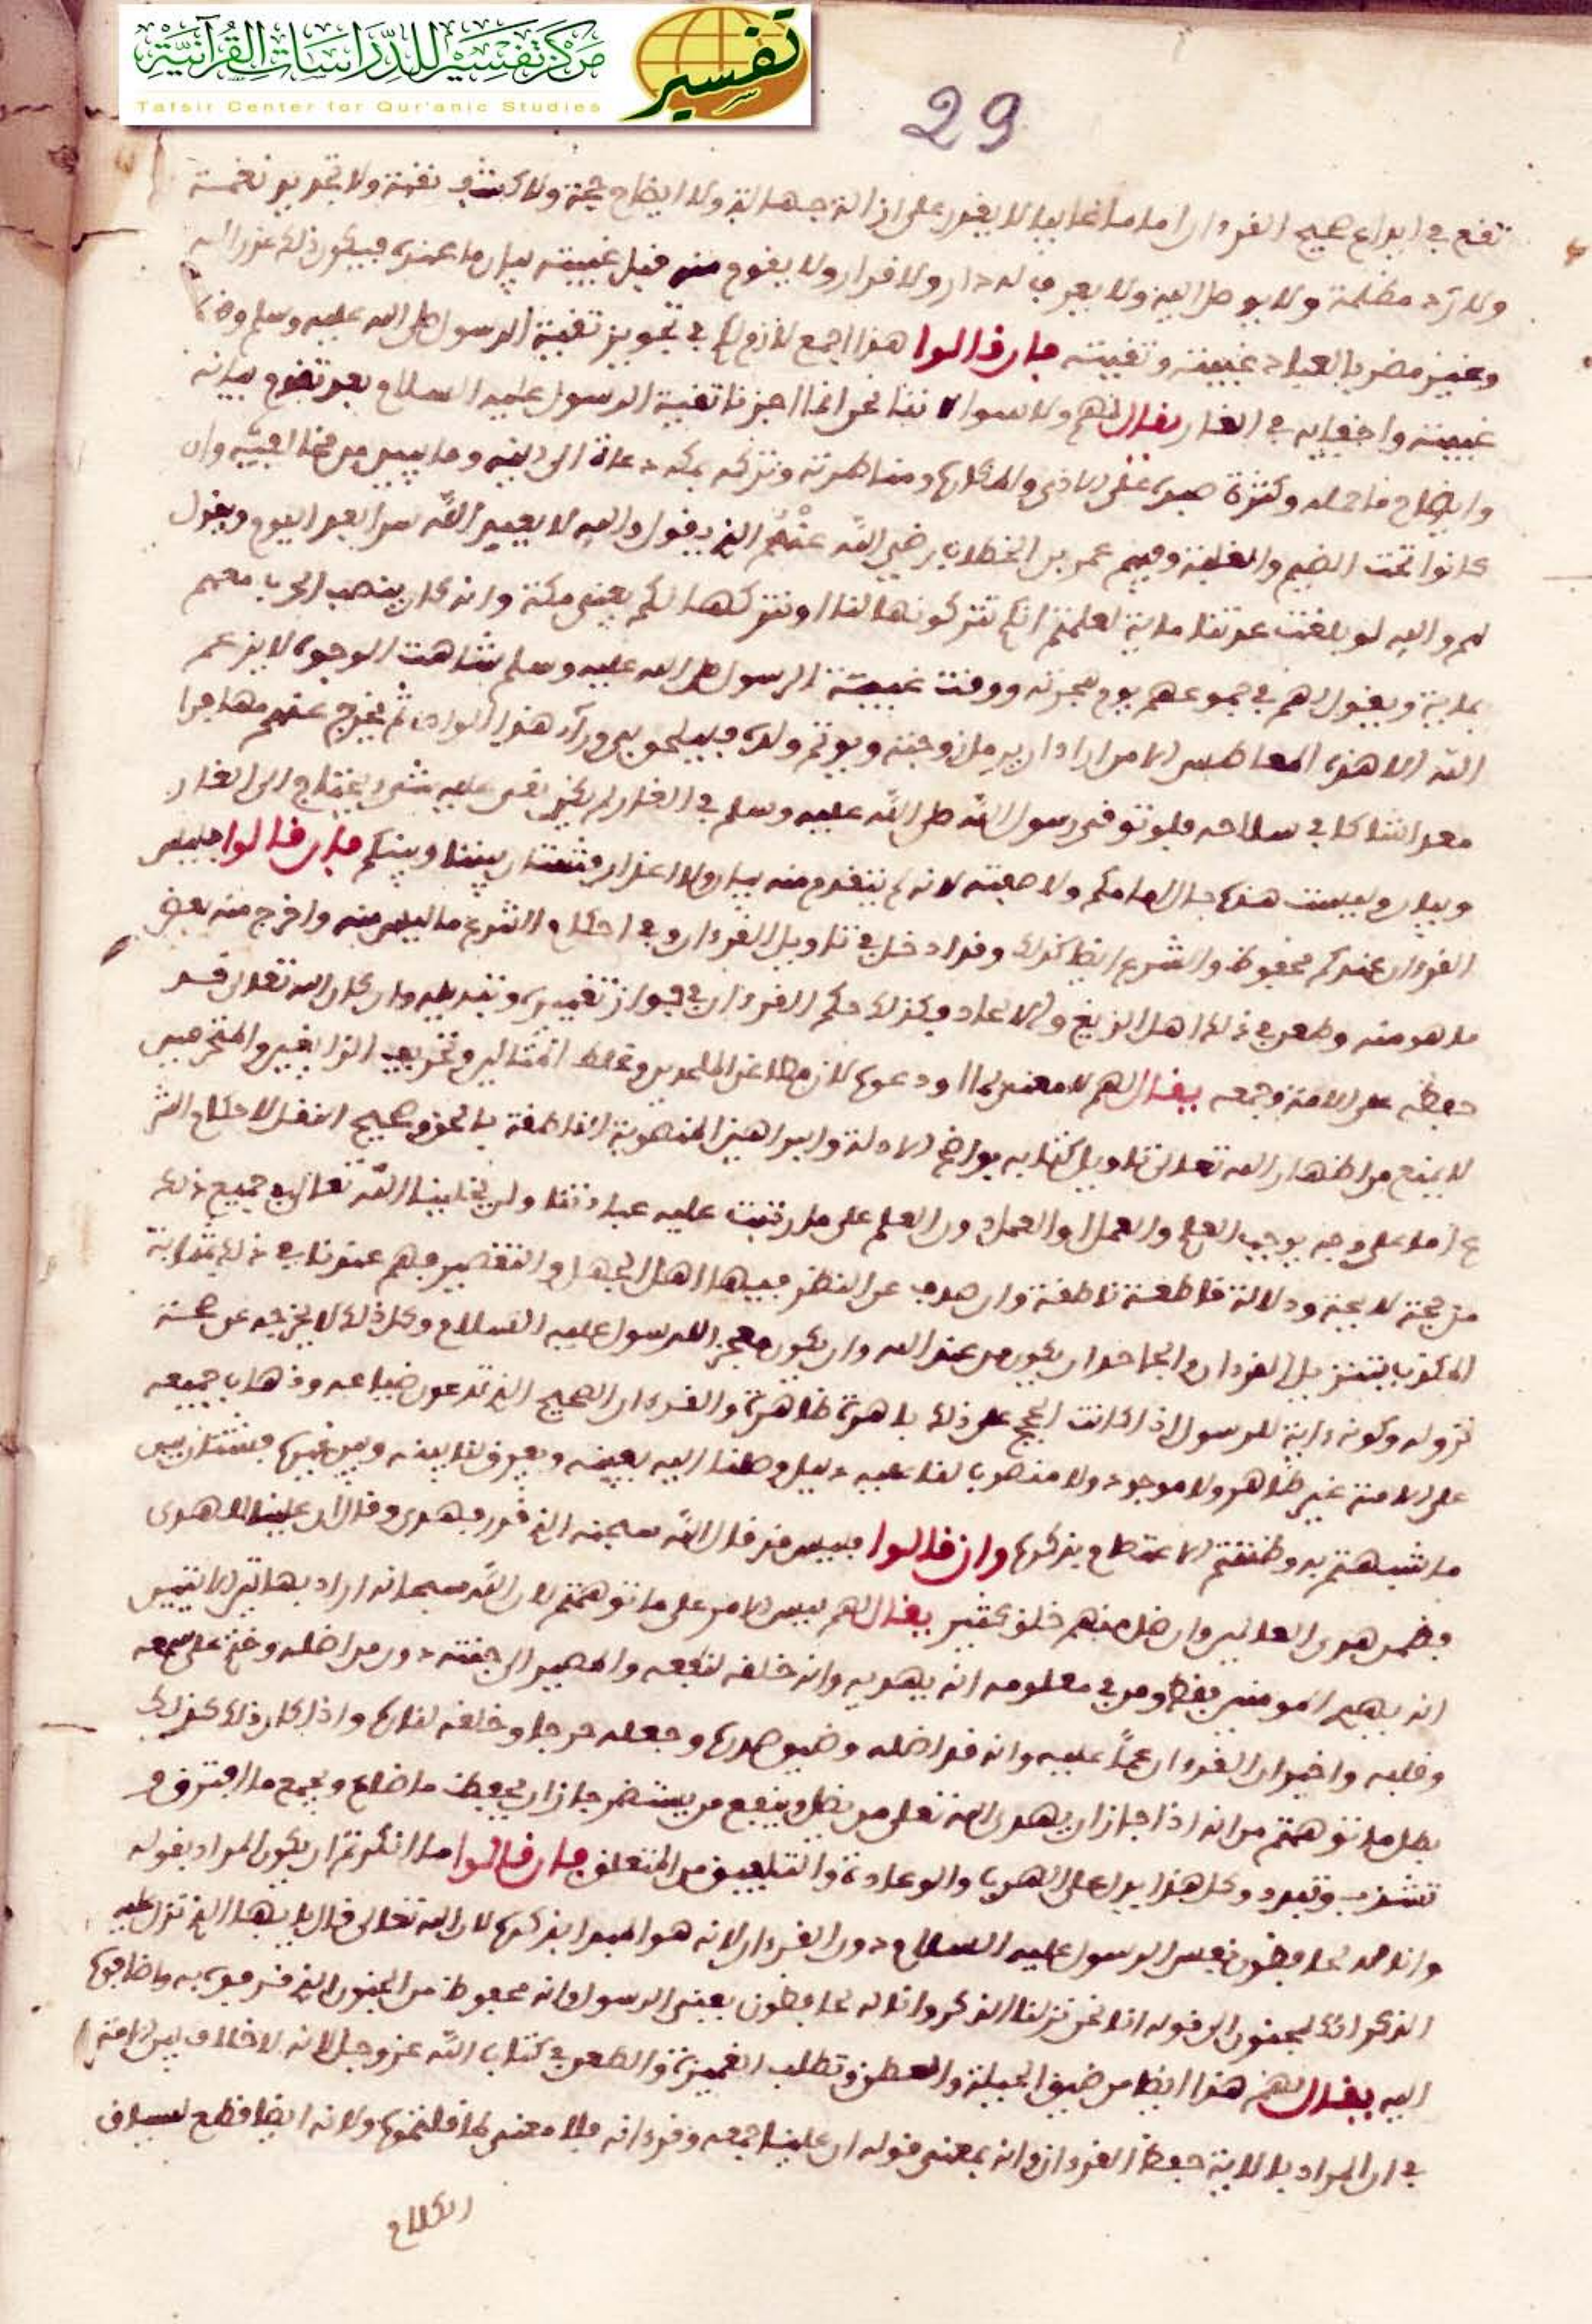 مركز تفسير للدراسات القرآنية
Tafsir Center for Qur'anic Studies
تفسير
29
تقع في ايداع صحيح القرءان اماما غايبا لا يقدر على ازالة جهالة ولا ايضاح حجة ولا كشف نقمة ولا تجديد نعمة
ولا رد مظلمة ولا يوصل اليه ولا يعرف له دار ولا قرار ولا يقوم منه قبل غيبته بيان ما عنده فيكون ذلك عذرا له
وغير مضر بالعباد غيبته وتقيته فان قالوا هذا اجمع لازم لكم في تجويز تقية الرسول صلى الله عليه وسلم وضر
غيبته واختفايه في الغار يقال لهم ولا سوا لاننا نحن انما اجزنا تقية الرسول عليه السلام بعد تقدم بيانه
وايضاح ما حمله وكثرة صبره على الاذى والمكاره ومناظرته وتركه بمكة دعاة الى دينه وما بيين من مخالفيه وان
كانوا تحت الضيم والغلبة وفيهم عمر بن الخطاب رضي الله عنه الذي يقول والله لا يعبد الله سرا بعد اليوم ويقول
لهم والله لو بلغت عدتنا ماية لعلمتم انكم تتركونها لنا او نتركها لكم يعني مكة وانه كان ينصب الحرب معهم
بماية ويقول لهم في جموعهم يوم هجرته ووقت غيبة الرسول صلى الله عليه وسلم شاهت الوجوه لا يرغم
الله الا هذه المعاطس الا من اراد ان يرمل زوجته ويوتم ولده فليلحق بي ورآء هذا الوادي ثم يخرج عنهم مهاجرا
معدا شاكا في سلاحه فلو توفي رسول الله صلى الله عليه وسلم في الغار لم يكن بقي عليه شيء يحتاج الى انفاذ
وبيان وليست هذه حال امامكم ولا صفته لانه لم يتقدم منه بيان ولا اعذار فشتان بيننا وبينكم فان قالوا فليس
القرءان عندكم محفوظ والشرع ايضا كذلك وقد ادخل في تاويل القرءان وفي احكام الشرع ما ليس منه واخرج منه بعض
ما هو منه وطعن في ذلك اهل الزيغ والالحاد فكذلك حكم القرءان في جواز تغييره وتبديله وان كان الله تعالى قد
حفظه على الامة وجمعه يقال لهم لا معنى لما اودعوه لان مطاعن الملحدين وغلط المتاولين وتحريف الزايغين والمنحرفين
لا يمنع من اظهار الله تعالى تاويل كتابه بواضح الادلة والبراهين المنصوبة الناطقة بالحق وصحيح النقل لاحكام الشر
ع اما على وجه يوجب العلم والعمل او العمل دون العلم على ما رتبت عليه عبادتنا ولن يخلينا الله تعالى في جميع ذلك
من حجة لايحة ودلالة قاطعة ناطقة وان صدف عن النظر فيها اهل الجهل والتقصير فهم عندنا في ذلك بمثابة
المكذب بتنزيل القرءان والجاحد ان يكون من عند الله وان يكون معجزا للرسول عليه السلام وكل ذلك لا يخرجه عن صحة
نزوله وكونه ءاية للرسول اذا كانت الحجج على ذلك باهرة ظاهرة والقرءان الصحيح الذي تدعون ضياعه وذهاب جميعه
على الامة غير ظاهر ولا موجود ولا منصوبا لنا عليه دليل وصلنا اليه بعينه ويعرفنا بينه وبين غيره فشتان بين
ما شبهتم به وظننتم الاعتصام بذكره وان قالوا فليس قد قال الله سبحنه الذي قدر فهدى وقال ان علينا للهدى
فضمن هدى العالمين وان ضل منهم خلق كثير يقال لهم ليس الامر على ما توهمتم لان الله سبحانه اراد بهاتين الايتين
انه يهدي المومنين فقط ومن في معلومه انه يهديه وانه خلقه لنفعه والمصير الى جنته دون من اضله وختم على سمعه
وقلبه واخبر ان القرءان عمًا عليه وانه قد اضله وضيق صدره وجعله حرجا وخلقه لناره واذا كان ذلك كذلك
بطل ما توهمتم من انه اذا جاز ان يهدي الله تعالى من يضل وينفع من يستضر جاز ان يحفظ ما ضاع ويجمع ما افترق و
تشذب وتبدد وكل هذا يدل على الهرب والوعادة والتلفيق من المتعلق فان قالوا ما انكرتم ان يكون المراد بقوله
وانا له لحافظون نفس الرسول عليه السلام دون القرءان لانه هو المبدا بذكره لان الله تعالى قال يايها الذي نزل عليه
الذكر انك لمجنون الى قوله انا نحن نزلنا الذكر وانا له لحافظون يعني الرسول وانه محفوظ من الجنون الذي قذفوه به واضافوه
اليه يقال لهم هذا ايضا من ضيق الحيلة والعطن وتطلب الغميزة والطعن في كتاب الله عز وجل لانه لا خلاف بين الامة
في ان المراد بالاية حفظ القرءان وانه بمعنى قوله ان علينا جمعه وقرءانه فلا معنى لما قلتموه ولانه ايضا قطع لسياق
الكلام